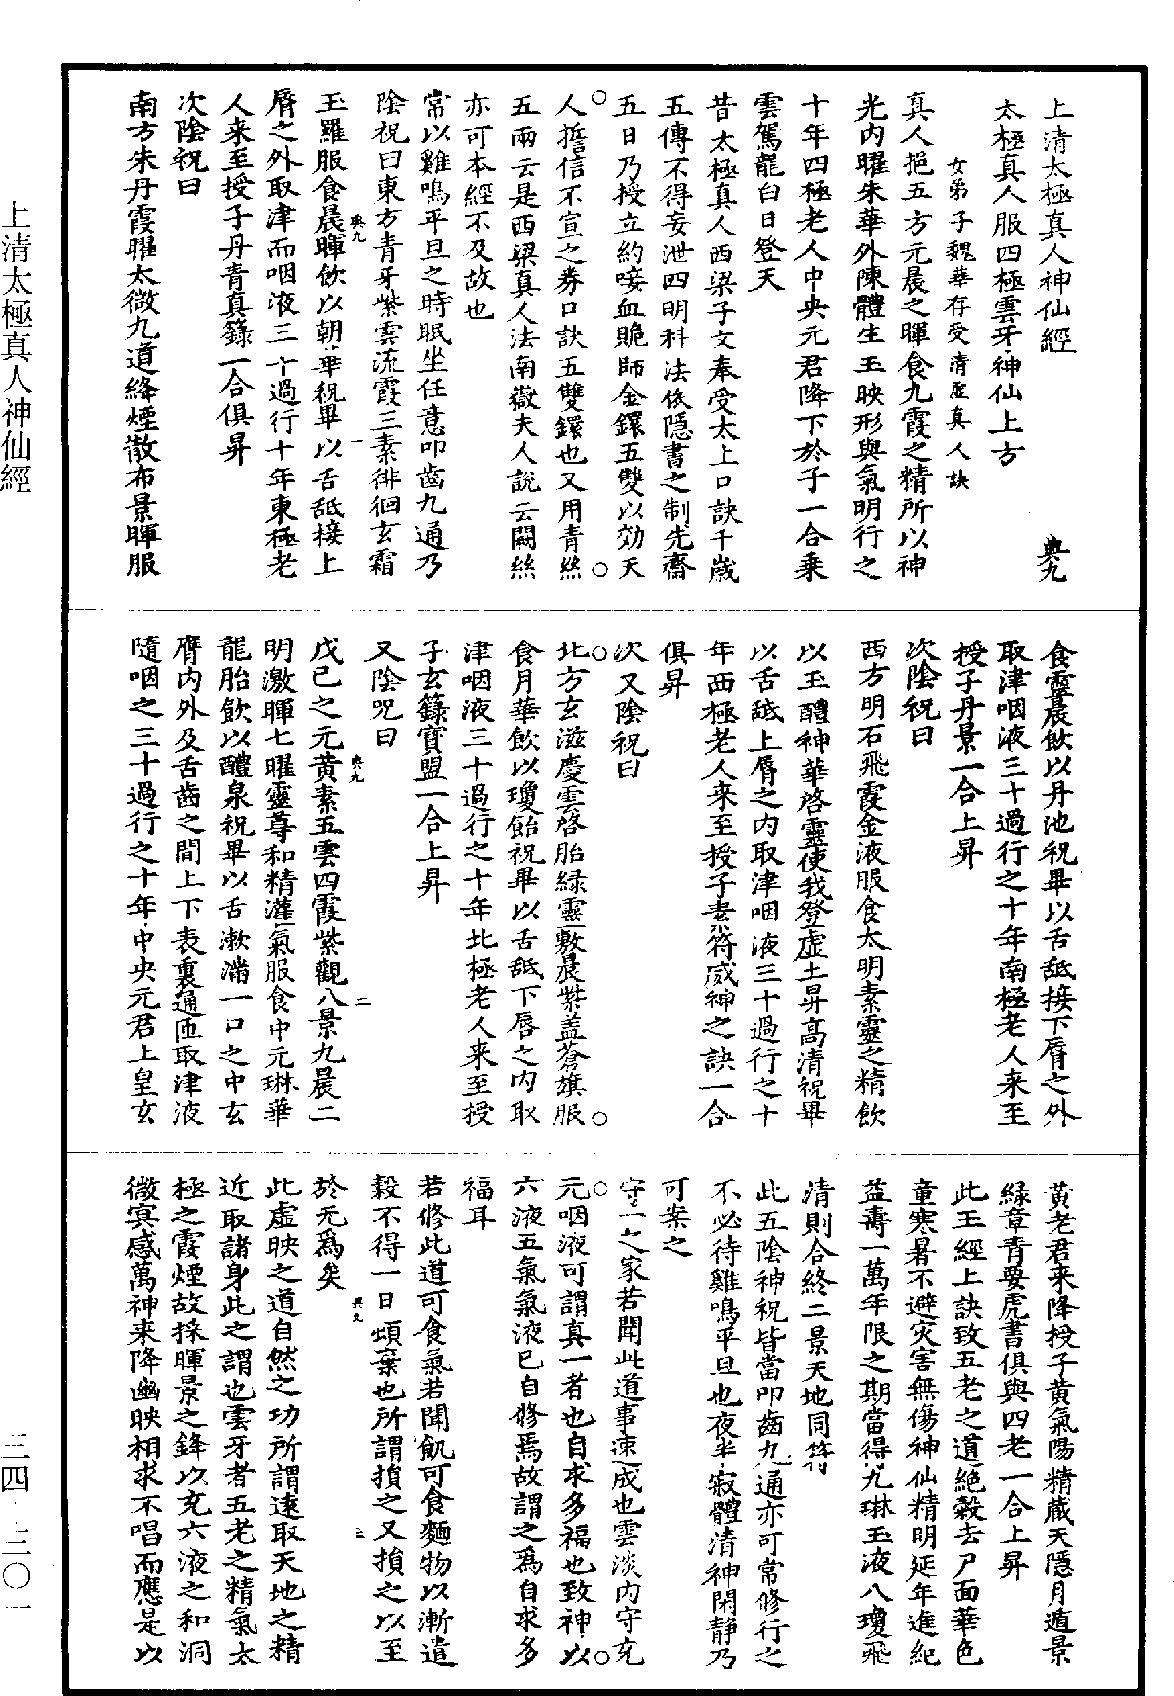 上清太極真人神仙經
典九
太極真人服四極雲牙神仙上方
女弟子魏華存受清虛真人訣
真人挹五方元晨之暉食九霞之精所以神
光內曜朱華外陳體生玉映形與氣明行之
十年四極老人中央元君降下於子一合乗
雲駕龍白日登天
昔太極真人西梁子文奉受太上口訣千歲
五傳不得妄泄四明科法依隱書之制先齋
五日乃授立約唼血跪師金鐶五雙以効天
人誓信不宣之券口訣五雙鐶也又用青絲
五兩云是西梁真人法南嶽夫人說云闕絲
亦可本經不及故也
常以雞鳴平旦之時眠坐任意叩齒九通乃
陰祝曰東方青牙紫雲流霞三素徘徊玄霜
典九
一
玉羅服食晨暉飲以朝華祝畢以舌舐接上
脣之外取津而咽液三十過行十年東極老
人来至授子丹青真籙一合俱昇
次陰祝曰
南方朱丹霞曜太微九道絳煙散布景暉服
食靈晨飲以丹池祝畢以舌舐接下脣之外
取津咽液三十過行之十年南極老人来至
授子丹景一合上昇
次陰祝曰
西方明石飛霞金液服食太明素靈之精飲
以玉醴神華啓靈使我登虛上昇高清祝畢
以舌舐上脣之內取津咽液三十過行之十
年西極老人来至授子素符威神之訣一合
俱昇
次又陰祝曰
北方玄滋慶雲啓胎緑靈敷晨紫蓋蒼旗服
食月華飲以瓊飴祝畢以舌舐下唇之內取
津咽液三十過行之十年北極老人来至授
子玄籙寶盟一合上昇
又陰咒曰
典九
二
戊己之元黃素五雲四霞紫觀八景九晨二
明激暉七曜靈尊和精灌氣服食中元琳華
龍胎飲以醴泉祝畢以舌漱滿一口之中玄
膺內外及舌齒之間上下表裏通匝取津液
隨咽之三十過行之十年中央元君上皇玄
黃老君来降授子黃氣陽精藏天隱月遁景
緑章青要虎書俱與四老一合上昇
此玉經上訣致五老之道絕穀去尸面華色
童寒暑不避灾害無傷神仙精明延年進紀
益壽一萬年限之期當得九琳玉液八瓊飛
清則合終二景天地同符
此五陰神祝皆當叩齒九通亦可常修行之
不必待雞鳴平旦也夜半寂體清神閑靜乃
可案之
守一之家若聞此道事速成也雲淡內守充
元咽液可謂真一者也自求多福也致神以
六液五氣氣液已自修焉故謂之為自求多
福耳
若修此道可食氣若聞飢可食麵物以漸遣
穀不得一日頓棄也所謂損之又損之以至
於无為矣
典九
三
此虛映之道自然之功所謂遠取天地之精
近取諸身此之謂也雲牙者五老之精氣太
極之霞煙故採暉景之鋒以充六液之和洞
微寞感萬神来降幽映相求不唱而應是以
上清太極真人神仙經
三四·三〇一